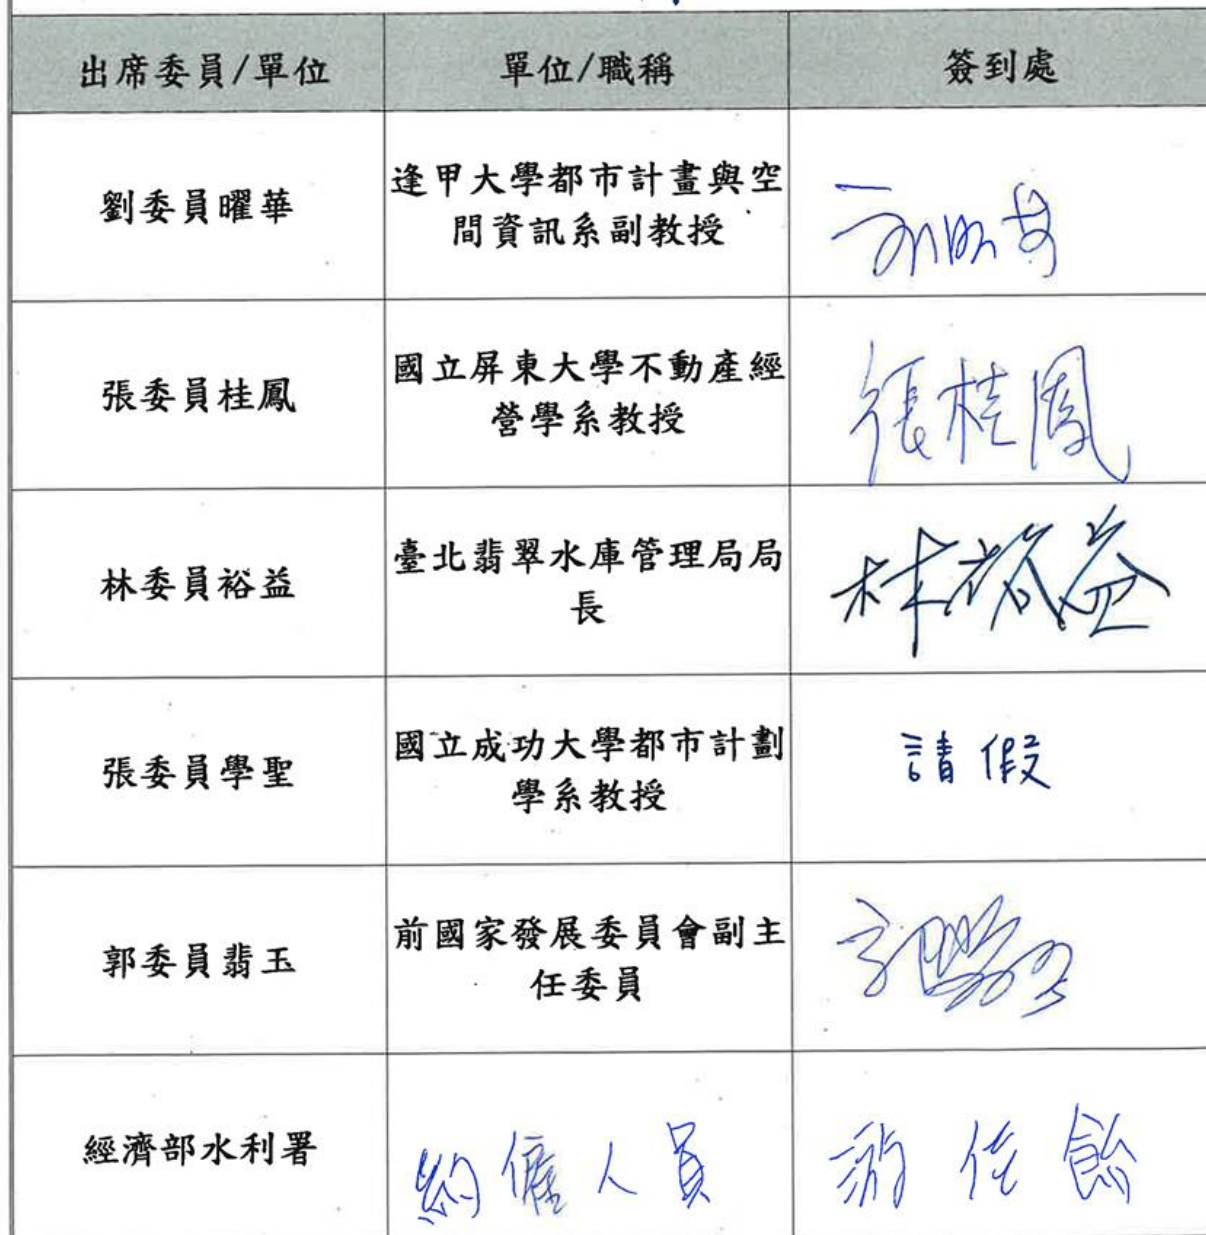 出席委員/單位 單位/職稱 簽到處
劉委員曜華 逢甲大學都市計畫與空
間資訊系副教授
張委員桂鳳 國立屏東大學不動產經 張桂鳳
營學系教授
林委員裕益 臺北翡翠水庫管理局局 林裕益
長
張委員學聖 國立成功大學都市計劃 請假
學系教授
郭委員翡玉 前國家發展委員會副主
任委員
經濟部水利署 約僱人員